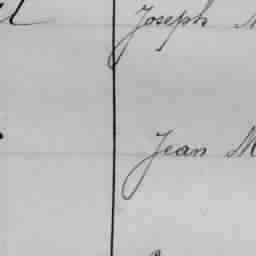 Joseph
Jean M